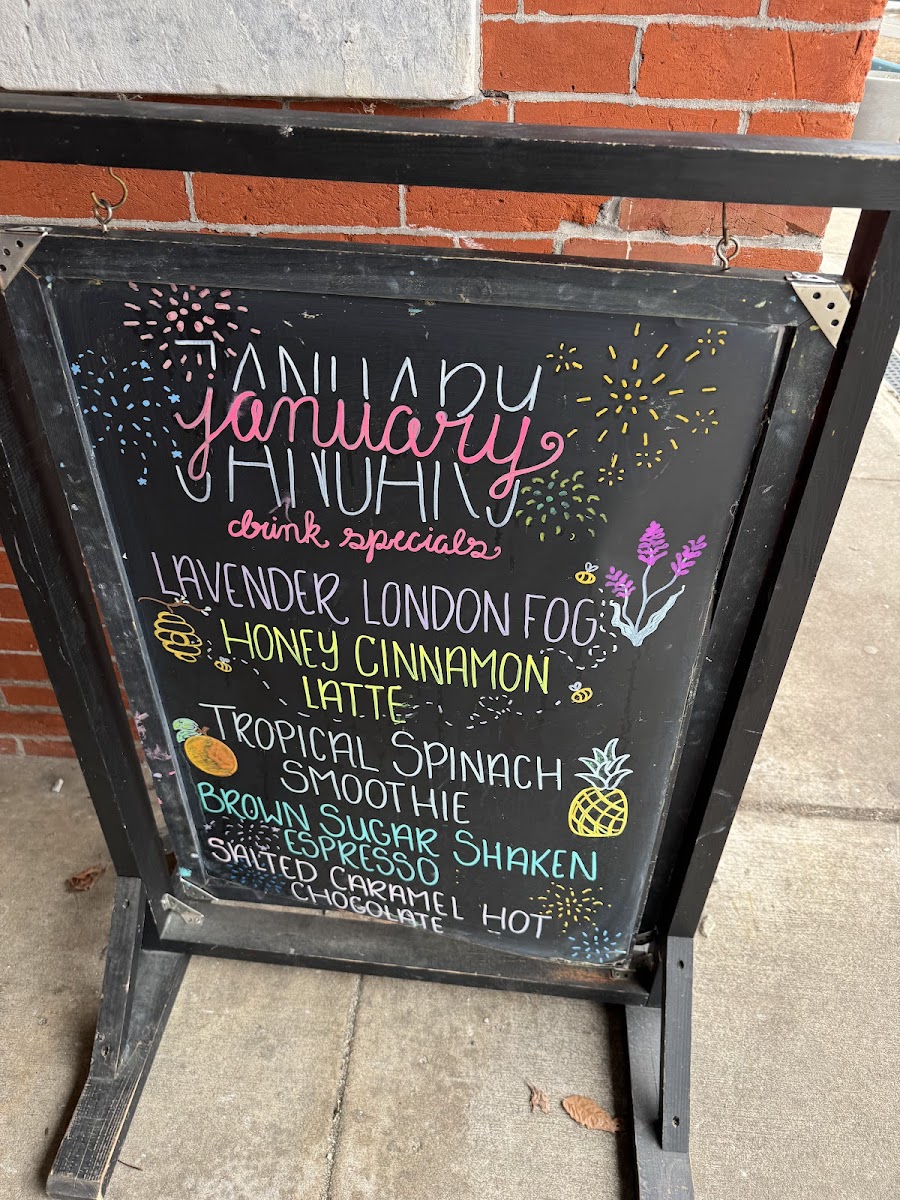 JANUARY
january
JANUARY
drink specials
LAVENDER LONDON FOG
HONEY CINNAMON
LATTE
TROPICAL SPINACH
SMOOTHIE
BROWN SUGAR SHAKEN
ESPRESSO
SALTED CARAMEL HOT
CHOCOLATE